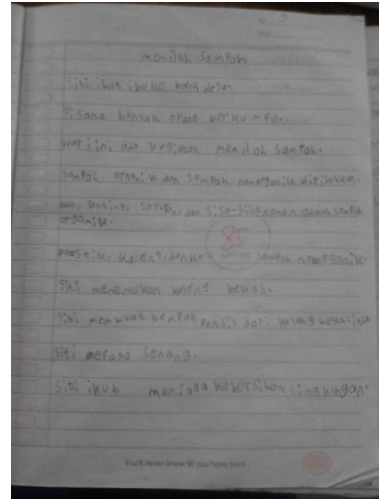 memilah sampah
siti ikut ibu ke balai desa.
disana banyak orang berkumpul.
hari ini ada kegiatan memilah sampah.
sampah organik dan sampah nanorganik dipisahkan.
ranting, sayur, dan sisa-sisa adalah sampah
organik.
85
plastik, kaleng, dan sampah anorganik.
Siti menemukan kaleng bekas.
Siti membuat tempat pensil dari kaleng bekas itu
siti merasa senang.
siti ikut menjaga kebersihan lingkungan.
You'll never know till you have tried